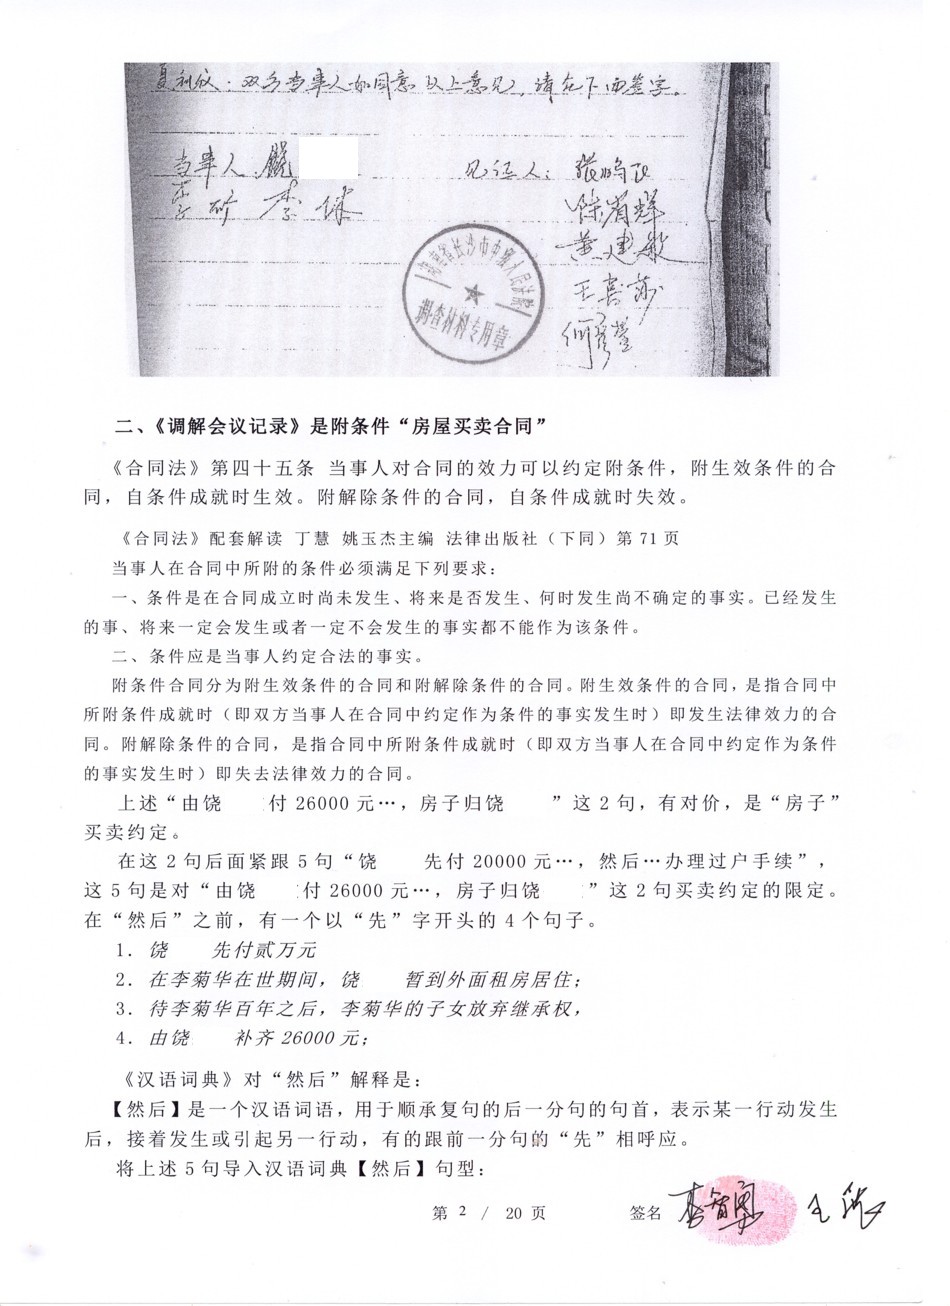 复和议．双方当事人如同意以上意见，请在下面签字。
当事人：饶
见证人：
李
黄建敏
湖南省长沙市中级人民法院
调查材料专用章
二、《调解会议记录》是附条件“房屋买卖合同”
《合同法》第四十五条 当事人对合同的效力可以约定附条件，附生效条件的合
同，自条件成就时生效。附解除条件的合同，自条件成就时失效。
《合同法》配套解读 丁慧 姚玉杰主编 法律出版社（下同）第 71 页
当事人在合同中所附的条件必须满足下列要求：
一、条件是在合同成立时尚未发生、将来是否发生、何时发生尚不确定的事实。已经发生
的事、将来一定会发生或者一定不会发生的事实都不能作为该条件。
二、条件应是当事人约定合法的事实。
附条件合同分为附生效条件的合同和附解除条件的合同。附生效条件的合同，是指合同中
所附条件成就时（即双方当事人在合同中约定作为条件的事实发生时）即发生法律效力的合
同。附解除条件的合同，是指合同中所附条件成就时（即双方当事人在合同中约定作为条件
的事实发生时）即失去法律效力的合同。
上述“由饶 付 26000 元…，房子归饶 ”这 2 句，有对价，是“房子”
买卖约定。
在这 2 句后面紧跟 5 句“饶 先付 20000 元…，然后…办理过户手续”，
这 5 句是对“由饶 付 26000 元…，房子归饶 ”这 2 句买卖约定的限定。
在“然后”之前，有一个以“先”字开头的 4 个句子。
1．饶 先付贰万元
2．在李菊华在世期间，饶 暂到外面租房居住；
3．待李菊华百年之后，李菊华的子女放弃继承权，
4．由饶 补齐 26000 元；
《汉语词典》对“然后”解释是：
【然后】是一个汉语词语，用于顺承复句的后一分句的句首，表示某一行动发生
后，接着发生或引起另一行动，有的跟前一分句的“先”相呼应。
将上述 5 句导入汉语词典【然后】句型：
第 2 / 20 页 签名